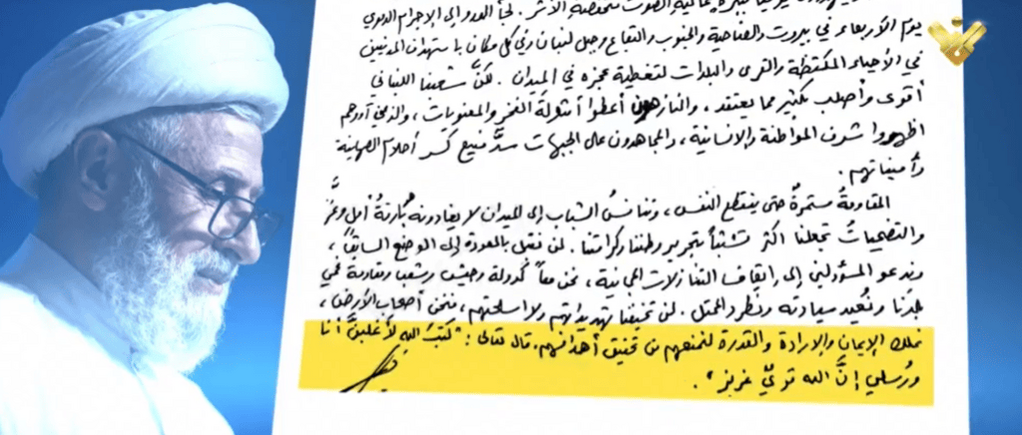 عالية الصوت منخفضة الأثر. لجأ العدو إلى الإجرام الدموي
يوم الأربعاء في بيروت والضاحية والجنوب والبقاع وجبل لبنان وفي كل مكان باستهداف المدنيين
في الأحياء المكتظة والقرى والبلدات لتغطية عجزه في الميدان. لكنَّ شعبنا اللبناني
أقوى وأصلب بكثير مما يعتقد، والنازحون أعطوا أمثولة الفخر والمعنويات، والذين آووهم
أظهروا شرف المواطنة والإنسانية، والمجاهدون على الجبهات سدٌّ منيع كسر أحلام الصهاينة
وأمنياتهم.
المقاومةُ مستمرةٌ حتى ينقطع النفس، وتنافسُ الشباب إلى الميدان لا يغادونه أمل وعزّ
والتضحيات تجعلنا أكثر تشبثاً بتحرير وطننا وكرامتنا. لن نقبل بالعودة إلى الوضع السابق،
وندعو المسؤولين إلى إيقاف التنازلات المجانية، نحن معاً كدولة وجيش وشعب ومقاومة نحمي
بلدنا ونُعيد سيادته ونطرد المحتل. لن تخيفنا تهديداتهم ولا أسلحتهم، فنحن أصحاب الأرض،
نملك الإيمان والإرادة والقدرة لنمنعهم من تحقيق أهدافهم. قال تعالى: "كَتَبَ الله لأغلبنَّ أنا
ورُسلي إنَّ الله قويٌّ عزيز".